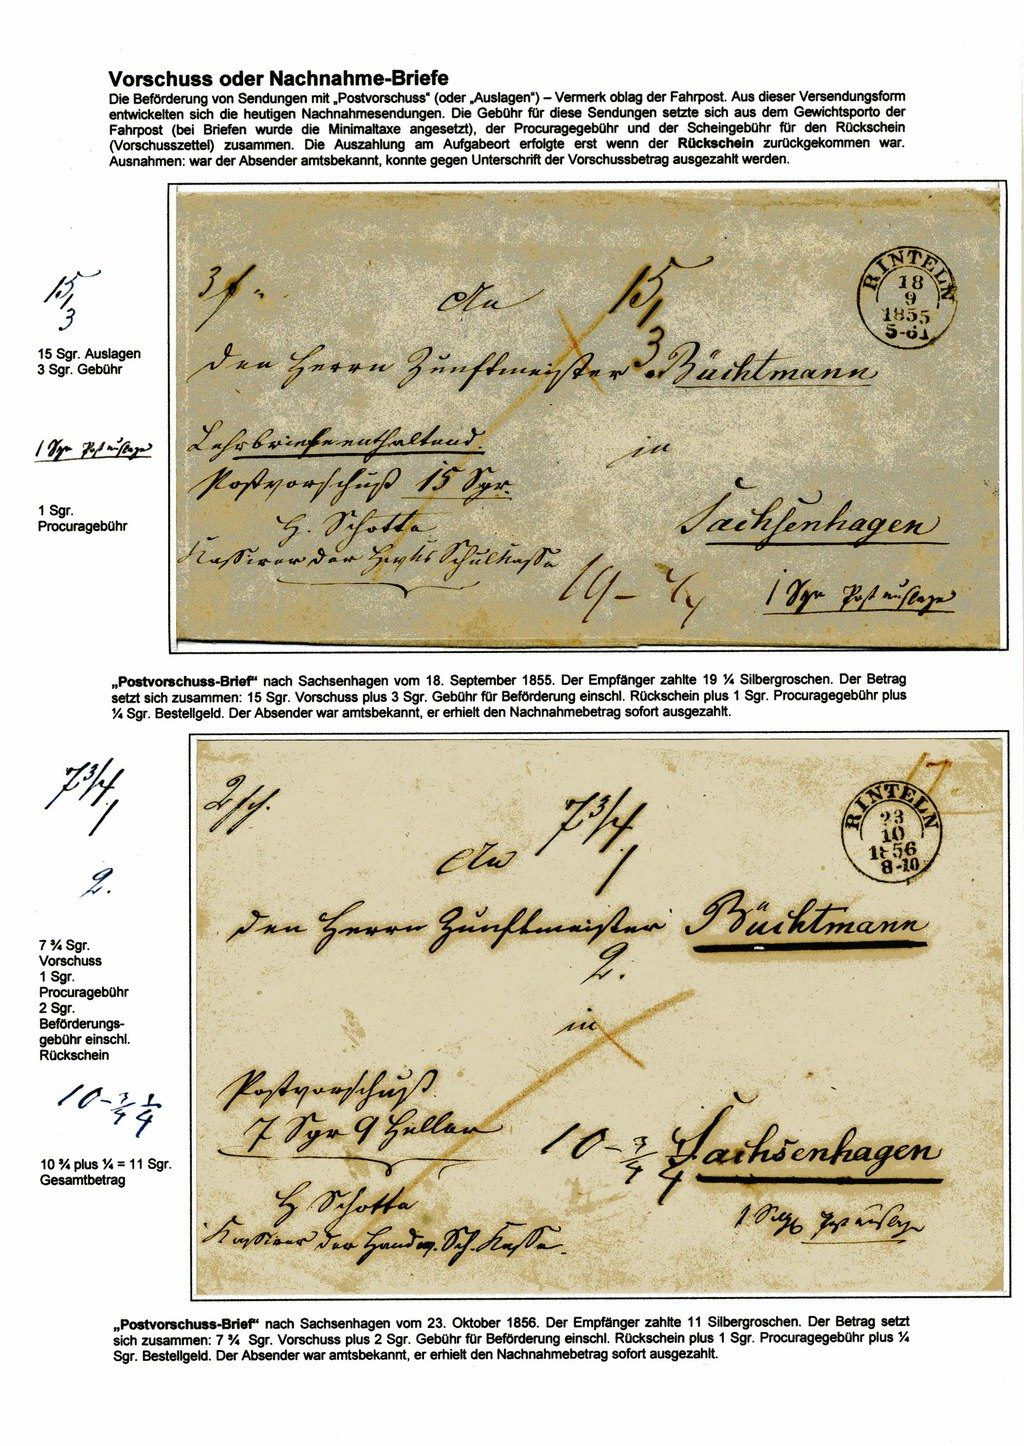 Vorschuss oder Nachnahme-Briefe
Die Beförderung von Sendungen mit „Postvorschuss“ (oder „Auslagen“) – Vermerk oblag der Fahrpost. Aus dieser Versendungsform
entwickelten sich die heutigen Nachnahmesendungen. Die Gebühr für diese Sendungen setzte sich aus dem Gewichtsporto der
Fahrpost (bei Briefen wurde die Minimaltaxe angesetzt), der Procuragegebühr und der Scheingebühr für den Rückschein
(Vorschusszettel) zusammen. Die Auszahlung am Aufgabeort erfolgte erst wenn der Rückschein zurückgekommen war.
Ausnahmen: war der Absender amtsbekannt, konnte gegen Unterschrift der Vorschussbetrag ausgezahlt werden.
15/
3
15 Sgr. Auslagen
3 Sgr. Gebühr
1 Sgr Postauslage
1 Sgr.
Procuragebühr
An
15/
3
RINTELN
18
9
1855
5-6
den Herrn Zunftmeister Büchtmann
Lehrbriefe enthaltend.
in
Postvorschuß 15 Sgr.
Sachsenhagen
H. Schotte
Kassirer der Schulkasse
19 – 1/4
1 Sgr Postauslage
„Postvorschuss-Brief“ nach Sachsenhagen vom 18. September 1855. Der Empfänger zahlte 19 ¼ Silbergroschen. Der Betrag
setzt sich zusammen: 15 Sgr. Vorschuss plus 3 Sgr. Gebühr für Beförderung einschl. Rückschein plus 1 Sgr. Procuragegebühr plus
¼ Sgr. Bestellgeld. Der Absender war amtsbekannt, er erhielt den Nachnahmebetrag sofort ausgezahlt.
7 3/4
1
2.
7 ¾ Sgr.
Vorschuss
1 Sgr.
Procuragebühr
2 Sgr.
Beförderungs-
gebühr einschl.
Rückschein
10 – 3/4 1/4
10 ¾ plus ¼ = 11 Sgr.
Gesamtbetrag
17
7 3/4
1
RINTELN
23
10
1856
8-10
An
den Herrn Zunftmeister Büchtmann
2.
in
Postvorschuß
7 Sgr 9 Heller
10 – 3/4 1/4
Sachsenhagen
H Schotte
Kassirer der Handw. Sch. Kasse.
1 Postauslage
„Postvorschuss-Brief“ nach Sachsenhagen vom 23. Oktober 1856. Der Empfänger zahlte 11 Silbergroschen. Der Betrag setzt
sich zusammen: 7 ¾ Sgr. Vorschuss plus 2 Sgr. Gebühr für Beförderung einschl. Rückschein plus 1 Sgr. Procuragegebühr plus ¼
Sgr. Bestellgeld. Der Absender war amtsbekannt, er erhielt den Nachnahmebetrag sofort ausgezahlt.